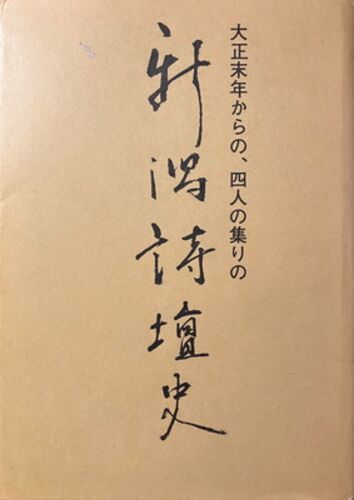 大正末年からの、四人の集りの
新潟詩壇史